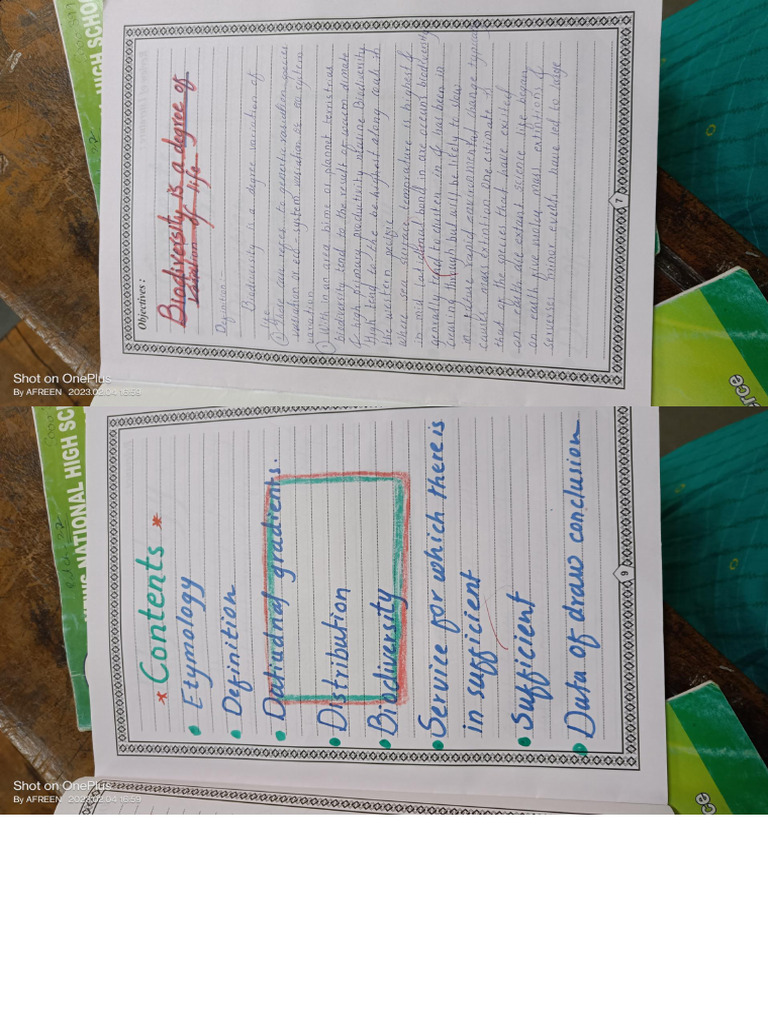 Objectives :
Biodiversity is a degree of
variation of life
Definition :-
Biodiversity is a degree variation of
life
These can refers to genetic variation species
variation or eco-system variation or on system
variation
with in un area bime or plannet terristrous
biodiversity tend to the result or warm dimate
& high primary productivity Marine Biodiversity
High tend to the be highest along coash in
the western pecific
where sea surface temperature is highest &
in mid latidional band in are occunt biodiversity
generally to custen in & has been in
creasing through but will be likely to slow
in future rapid environmental change typicaly
causes mass extintion one estimate is
that or the species that have existed
on earth are extant science like began
on earth five moley mass extintions &
serverse minor events have led to large
7
HIGH SCHO
Shot on OnePlus
By AFREEN 2023.02.04 16:59
* Contents *
Etymology
Definition
gradients.
Distribution
Biodiversity
Service for which there is
in sufficient
Sufficient
Data of draw conclusion
9
NATIONAL HIGH SC
Shot on OnePlus
By AFREEN 2023.02.04 16:59